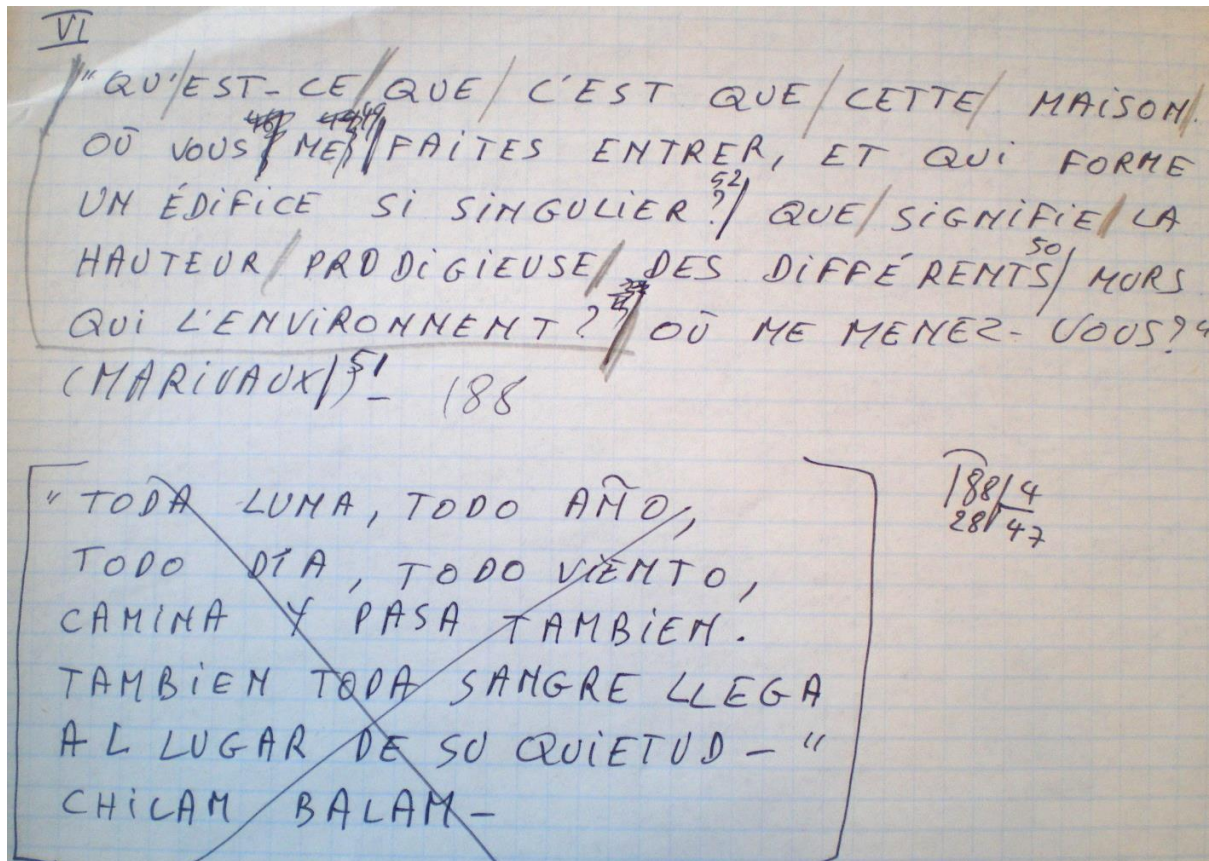 VI
"QU'/EST-CE/QUE/C'EST QUE/CETTE/MAISON/.
OÙ VOUS/ME//FAITES ENTRER, ET QUI FORME
UN ÉDIFICE SI SINGULIER?/52 QUE/SIGNIFIE/LA
HAUTEUR/PRODIGIEUSE/DES DIFFÉRENTS/50 MURS
QUI L'ENVIRONNENT?/OÙ ME MENEZ-VOUS?"
(MARIVAUX/)51- 188
"TODA LUNA, TODO AÑO,
TODO DÍA, TODO VIENTO,
CAMINA Y PASA TAMBIEN.
TAMBIEN TODA SANGRE LLEGA
AL LUGAR DE SU QUIETUD-"
CHILAM BALAM-
188/4
28/47